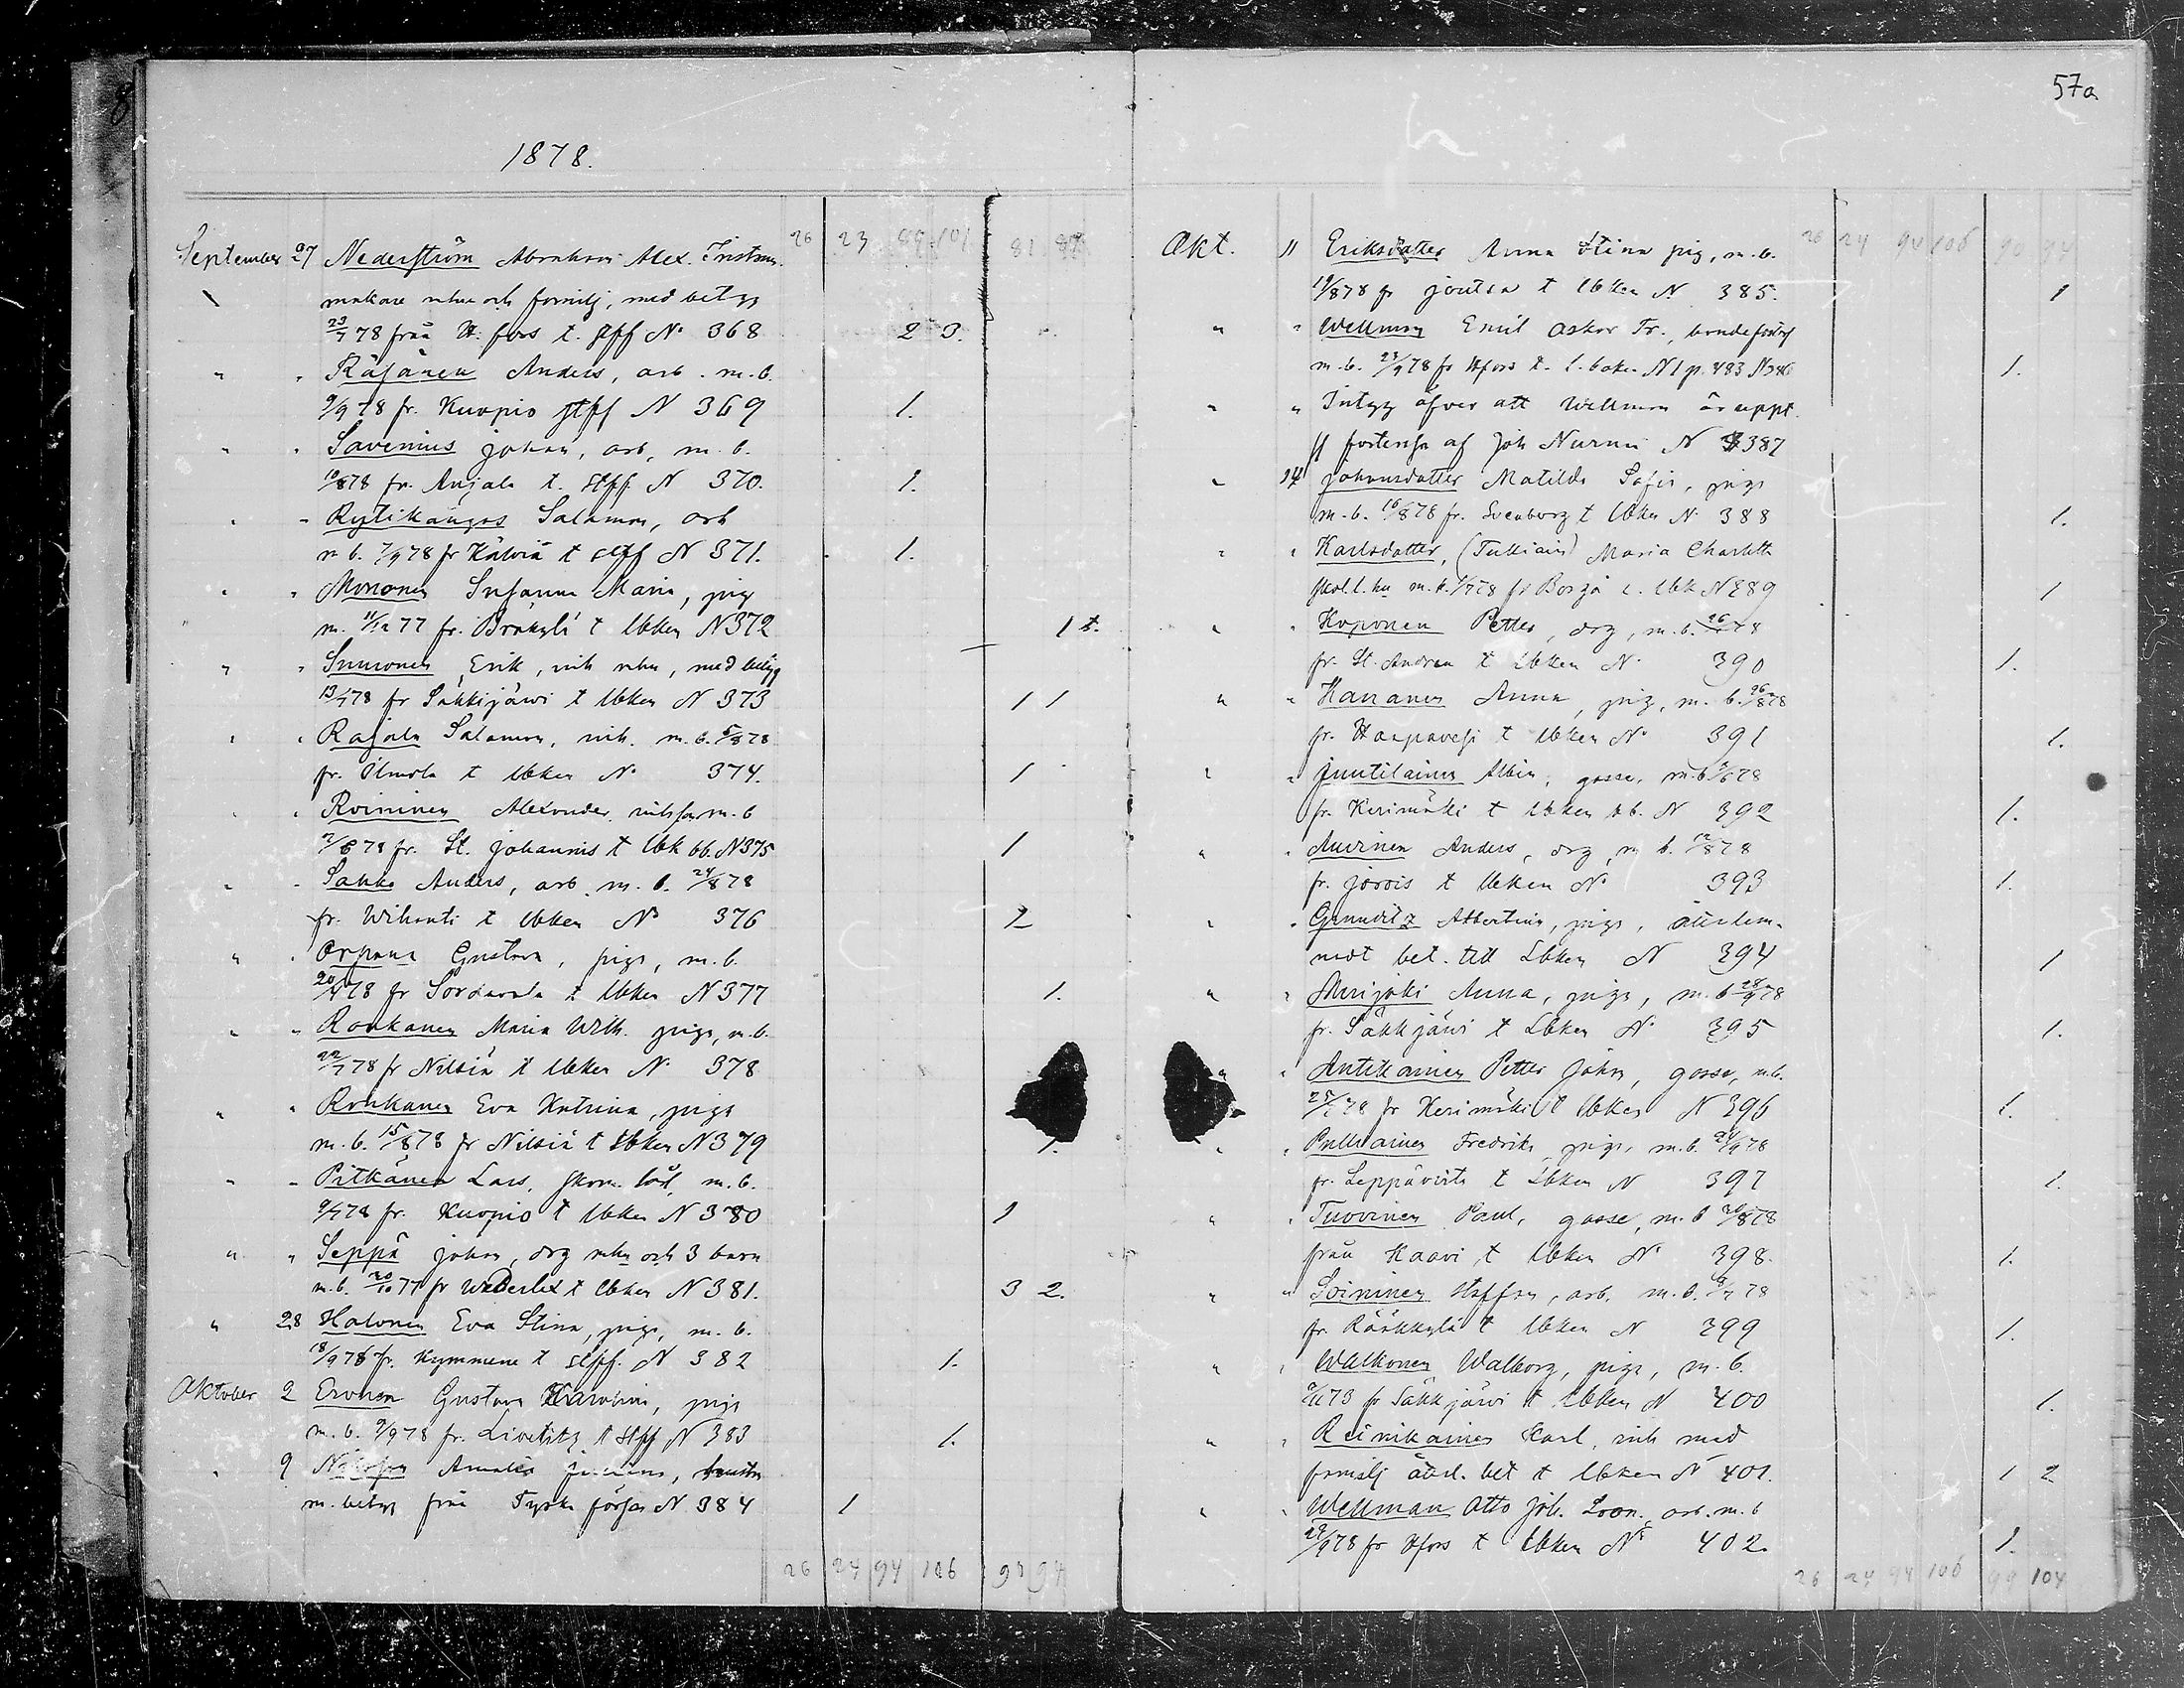 1878.
26 23 89 101 81 87
September 27 Nederström Abraham Alex.
makare och familj, med betyg
23/7 78 från H:fors t. stff No 368 2 3.
" " Räsänen Anders, arb. m.b.
9/9 78 fr. Kuopio stff N 369 1.
" " Savenius Johan, arb, m.b.
10/8 78 fr. Anjala t. stff N 370. 1.
" " Rytikangas Salamon, arb
m b. 7/9 78 fr Kälviä t stff N 371. 1.
" " Mononen Susanna Maria, pig
m. 11/12 77 fr. Bräkylä t lbken N 372 1
" " Simonen Erik, inh, med betyg
13/7 78 fr Säkkijärvi t lbken N 373 1 1
" " Rajala Salamon, inh. m.b. 5/8 78
fr. Ilmola t lbken No 374. 1
" " Roininen Alexander m.b
fr. St. Johannis t lbk bb. N 375 1
" " Sakko Anders, arb. m.b. 24/8 78
fr. Wihanti t lbken No 376 1
" " Orpana Gustava, piga, m.b.
20/9 78 fr Sordavala t lbken N 377 1.
" " Ronkanen Maria Wilh. piga, m.b.
22/7 78 fr Nilsiä t lbken N. 378
" " Ronkanen Eva Katrina, piga
m.b. 15/8 78 fr Nilsiä t lbken N 379 1.
" " Pitkänen Lars, skom. m.b.
9/7 78 fr. Kuopio t lbken N 380 1
" " Seppä Johan, drg och 3 barn
m.b. 20/10 77 fr Wederlax t lbken N 381. 3 2.
" 28 Halonen Eva Stina, piga, m.b.
18/9 78 fr. Kymmene t stff. N 382 1.
Oktober 2 Gustava Karolina, piga
m.b. 9/9 78 fr. Livelitz t stff N 383 1.
" 9 Amalia
m. betyg från Tyska förs N 384 1
26 24 94 106 93 94
57a
26 24 94 106 90 94
Okt. 11 Eriksdotter Anna Stina pig, m.b.
19/8 78 fr Joutsa t lbken N 385. 1
" " Wellman Emil Oskar Fr.,
m.b. 23/9 78 fr Hfors t. l.boken N 1 p. 483 N 386 1.
" " Intyg öfver att Wellman är uppt.
af Joh Nurmi N 387
" 14 Johansdotter Matilda Sofia, piga
m.b. 10/8 78 fr. Sveaborg t lbken N. 388 1.
" " Karlsdotter, (Tulliain) Maria Charlotta
fr Borgå t. lbk N 389 1
" " Koponen Petter, drg, m.b.
fr. St. Andrea t lbken N. 390 1.
" " Hananen Anna, pig, m.b. 26/8 78
fr. Haapavesi t lbken No 391 1.
" " Juutilainen Albin, gosse, m.b.
fr. Kerimäki t lbken bb. N 392 1.
" " Auvinen Anders, drg, m b. 12/8 78
fr. Jorois t lbken No 393 1.
" " Albertina, piga, återlem-
nadt bet. till Lbken N 394 1
" " Merijoki Anna, piga, m.b 28/9 78
fr. Säkkjärvi t Lbken No 395 1.
" " Antikainen Petter Johan, gosse, m.b.
fr Kerimäki t lbken N 396 1.
" " Pulliainen Fredrika piga, m.b. 24/9 78
fr. Leppävirta t Lbken N 397 1.
" " Tuovinen Paul, gosse, m.b 20/8 78
från Kaavi t lbken No 398. 1.
" " Soininen Staffan, arb. m.b.
fr. Rääkkylä t lbken N 399 1.
" " Walkonen Walborg, piga, m.b.
fr Säkkjärvi t lbken N 400 1.
" " Reinikainen Karl, inh med
familj återl. bet t lbken N 401. 1 2
" " Wellman Otto Joh. Leon., arb. m.b
29/9 78 fr Hfors t lbken No 402. 1.
26 24 94 106 99 104